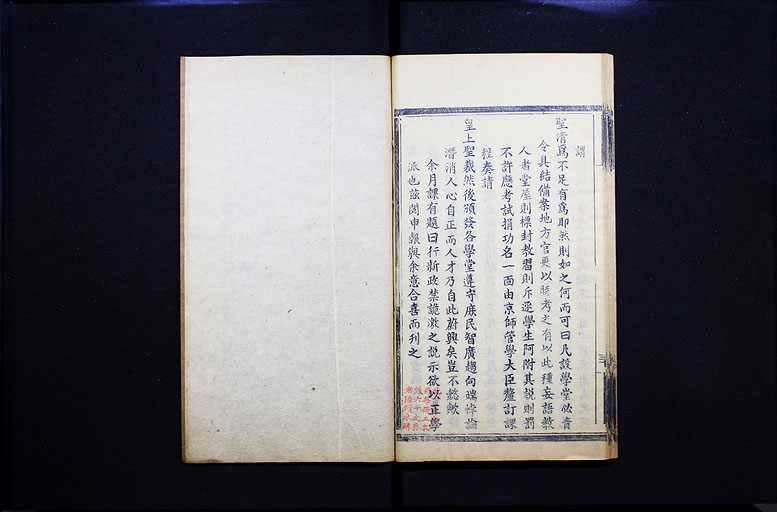 謂
聖清爲不足有爲耶然則如之何而可曰凡設學堂必責
令具結備案地方官更以時考之有以此種妄語教
人者堂屋則標封教習則斥逐學生阿附其說則罰
不許應考試捐功名一面由京師管學大臣釐訂課
程奏請
皇上聖裁然後頒發各學堂遵守庶民智廣趨向端悖論
潛消人心自正而人才乃自此蔚興矣豈不懿歟
余月課有題曰行新政禁詭激之說示欲以正學
派也茲閱申報與余意合喜而刊之